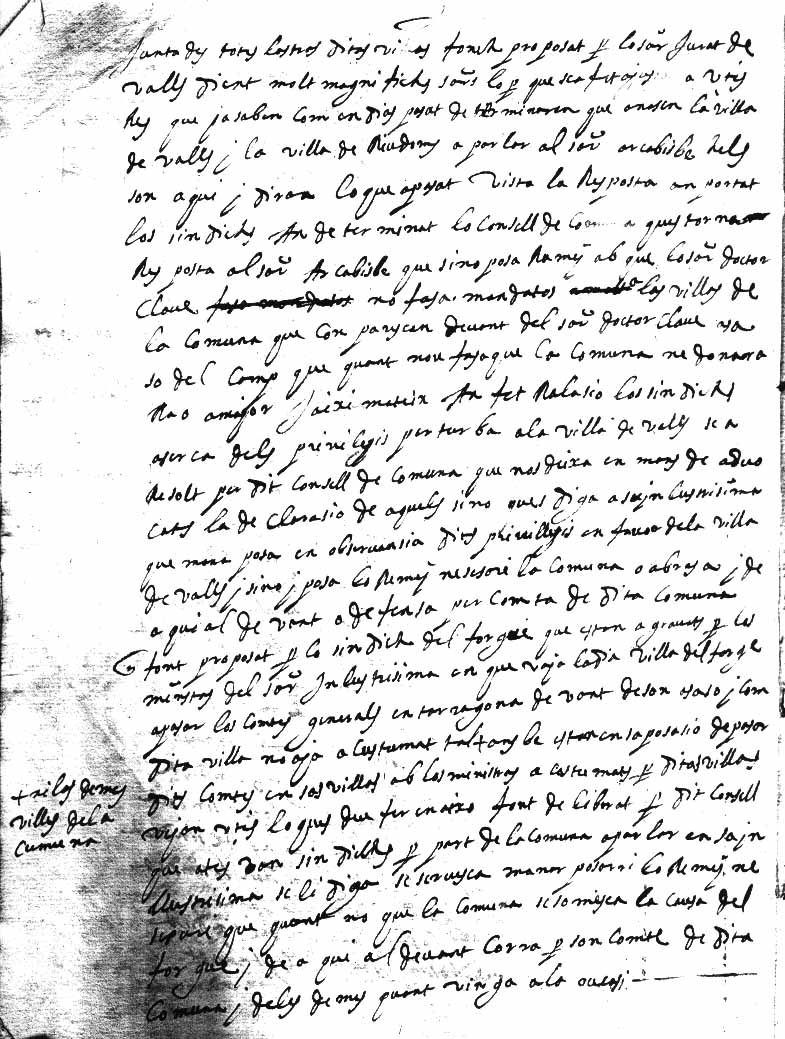 Juntades totes las tres ditas vilas fonch proposat per lo sor Jurat de
valls dient molt magnifichs sors lo per que sea fet a vtes
Res que ja saben com en dias pasat determinaren que anasen la villa
de valls j la villa de Riudoms a parlar al sor arcabisbe hels
son aqui j diran lo que apasat vista la Resposta an portat
los sindichs An determinat lo Consell de Comuna a ques torna
Resposta al sor Arcabisbe que sino posa Ramey ab que lo sor doctor
Clave fasa mandatos no fasa mandatos las villas de
la Comuna que Conparescan devant del sor doctor Clave
del Camp que quant nou fasa que la Comuna ne donara
Rao amajor J aixi mateix An fet Ralasio los sindichs
aserca dels privilegis perturba a la villa de valls sea
Resolt per dit Consell de Comuna que nos deixa en mans de advo
cats la de Clarasio de aquels sino ques diga a sa jnlustrisima
que mana posa en observansia dits privillegis en favor de la villa
de valls j sino j posa lo Remey nesesari la Comuna o abrasa j de
aqui al devant a defensa per Comta de dita Comuna
font proposat per lo sindich del forgue que estan agravats per los
menistras del sor Jnlustrisima en que vaja la dia villa del forge
apasar los Comtes generals en tarragona devant de son asaso j Com
dita villa no aja acustumat tal tans be estan en sa posasio de pasar
dits Comtes en sas villas ab los ministras acostumats per ditas villas
+ ne las demes
villes de la
Cumuna
vejan vtes lo ques deu fer en aixo font deliberat per dit Consell
que ates van sindichs per part de la Comuna a parlar en sa jn
llustrisima se li diga se servesca manar posarri lo Remey ne
sesari que quant no que la Comuna se somesca la causa del
forgue j de aqui al devant Corra per son Comte de dita
Comuna j dels demes quant vinga a la ocasi